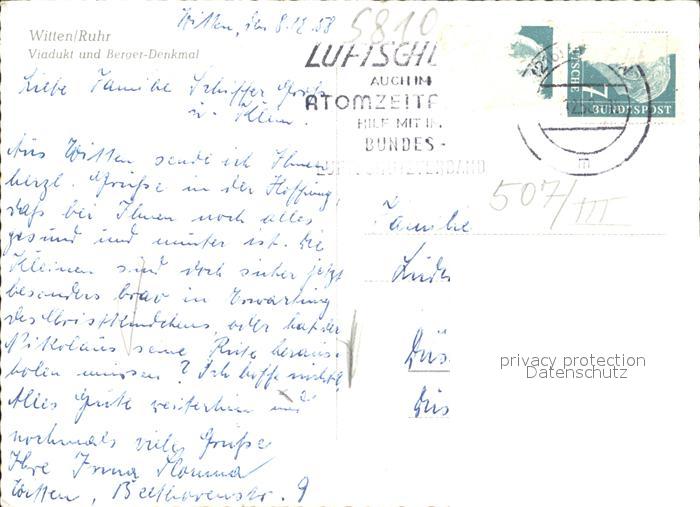 Witten, den 8.12.58
5810
Witten/Ruhr
Viadukt und Berger-Denkmal
LUFTSCH
AUCH IM
ATOMZEITA
HILF MIT IM
BUNDES-
BAND
7
BUNDESPOST
m
Liebe Familie Schiffer Groß
u. Klein!
Aus Witten sende ich Ihnen
herzl. Grüße in der Hoffnung,
daß bei Ihnen noch alles
gesund und munter ist. Die
Kleinen sind doch sicher jetzt
besonders brav in Erwartung
des Christkindchens, oder hat der
Nikolaus seine Rute heraus-
holen müssen? Ich hoffe nicht!
Alles Gute weiterhin und
nochmals viele Grüße
Ihre Irma
Witten, Beethovenstr. 9
507/III
Familie
Düs
Düs
privacy protection
Datenschutz